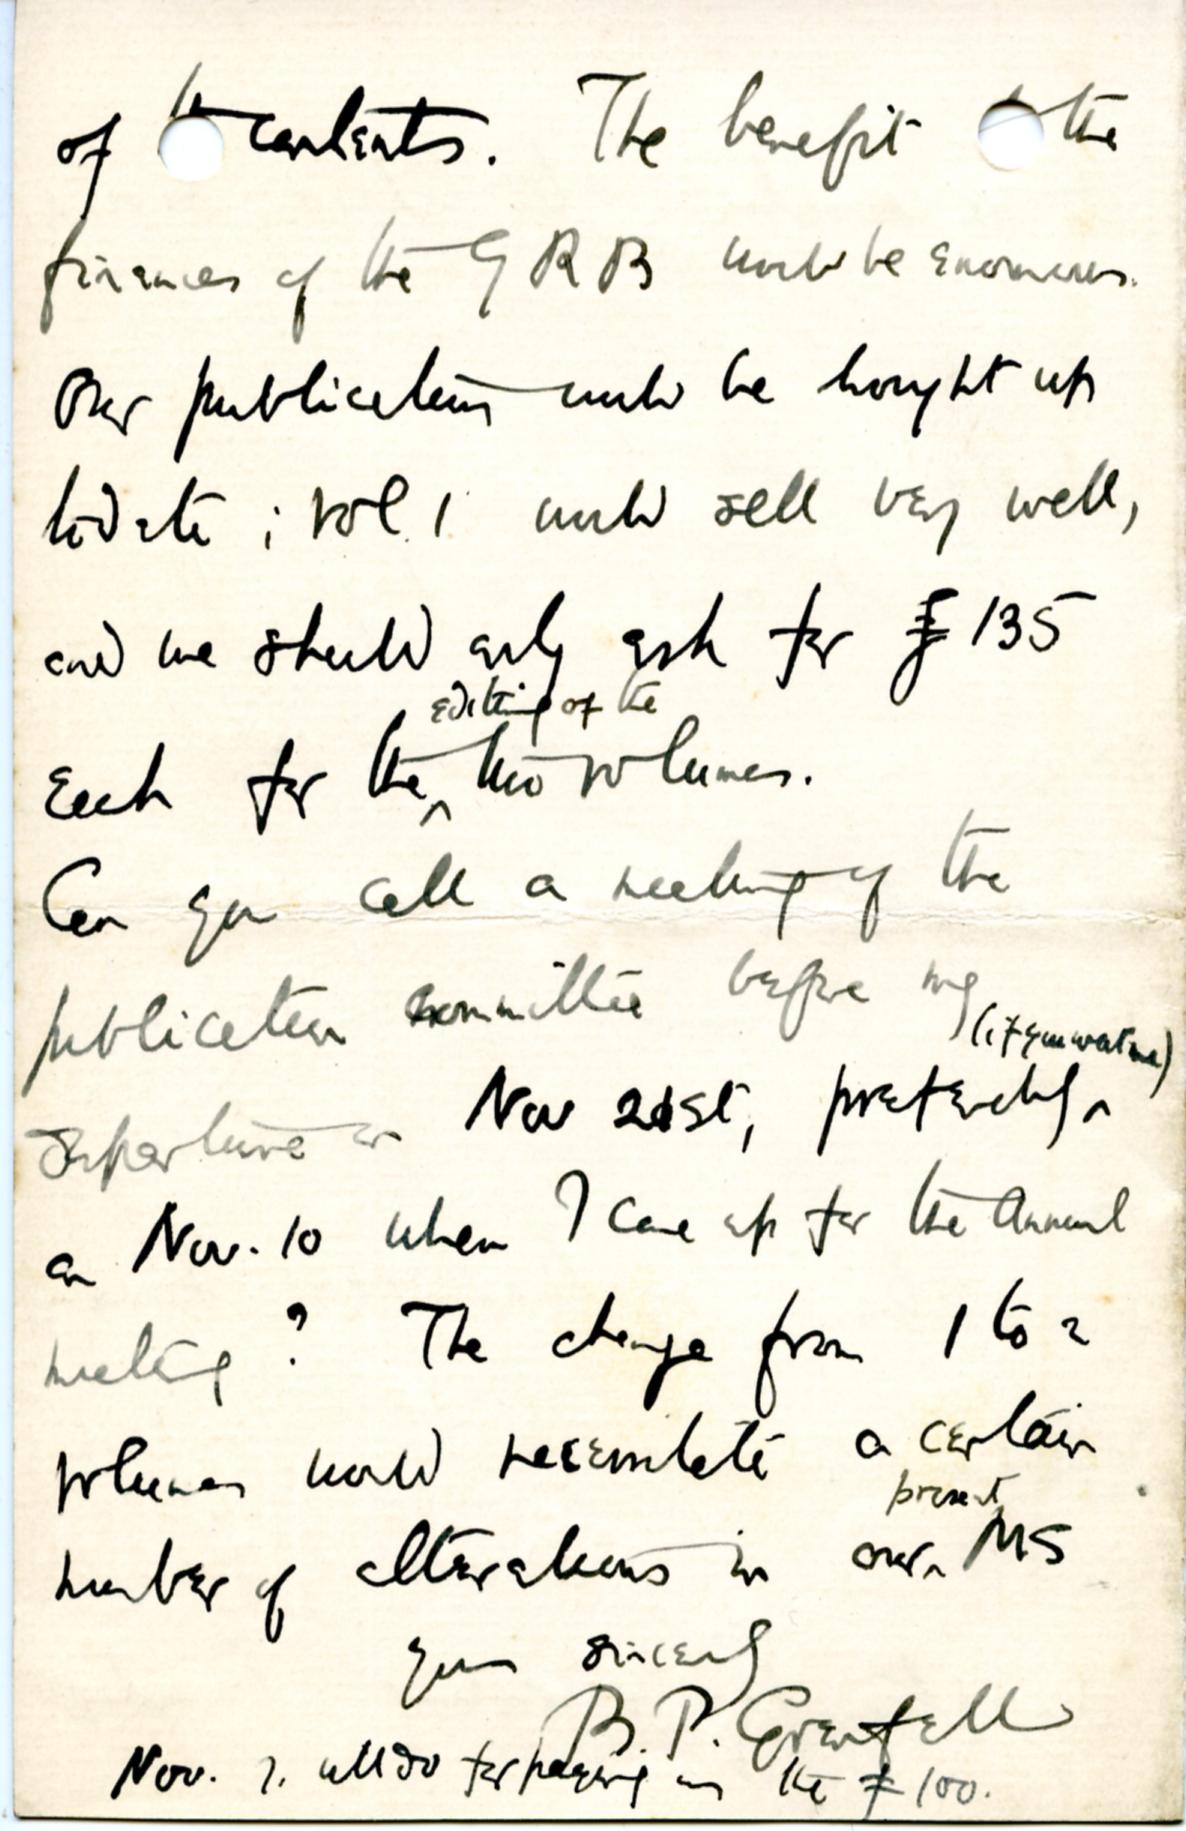 of its contents. The benefit to the
finances of the GRB would be enormous.
Our publications would be bought up
to date ; vol. 1 would sell very well,
and we should only ask for £ 135
editing of the
each for the ^ two volumes.
Can you call a meeting of the
publication committee before my
(if you want me)
departure on Nov 21st, preferably ^
on Nov. 10 when I come up for the Annual
meeting ? The change from 1 to 2
volumes would necessitate a certain
present
number of alterations in our ^ MS
yours sincerely
B. P. Grenfell
Nov. 7. will do for paying in the £ 100.